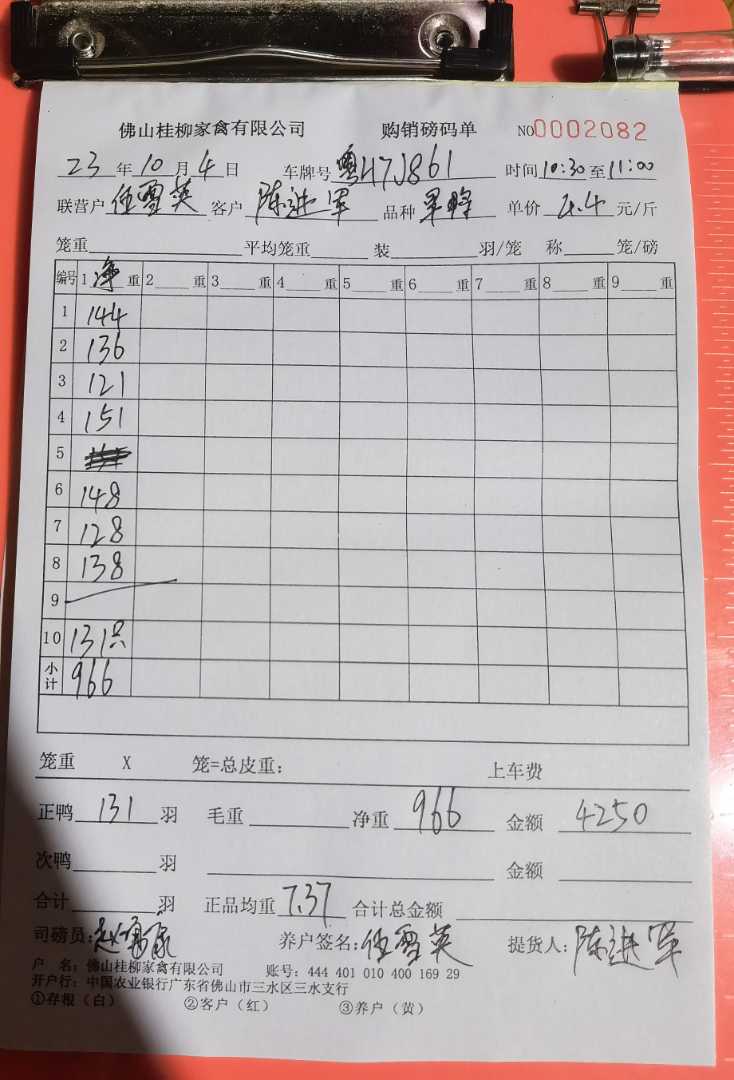 佛山桂柳家禽有限公司 购销磅码单 NO0002082
23年10月4日 车牌号 粤H7J861 时间10:30至11:00
联营户 伍雪英 客户 陈进军 品种 单价 4.4 元/斤
笼重 平均笼重 装 羽/笼 称 笼/磅
编号 1 净 重 2 重 3 重 4 重 5 重 6 重 7 重 8 重 9 重
1 144
2 136
3 121
4 151
5
6 148
7 128
8 138
9
10 131只
小计 966
笼重 X 笼=总皮重: 上车费
正鸭 131 羽 毛重 净重 966 金额 4250
次鸭 羽 金额
合计 羽 正品均重 7.37 合计总金额
司磅员: 养户签名: 伍雪英 提货人: 陈进军
户 名: 佛山桂柳家禽有限公司 账号: 444 401 010 400 169 29
开户行: 中国农业银行广东省佛山市三水区三水支行
①存根（白） ②客户（红） ③养户（黄）